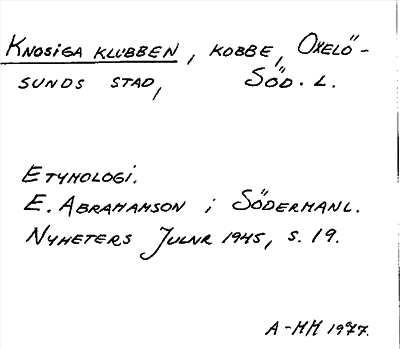 KNOSIGA KLUBBEN, KOBBE, OXELÖ-
SUNDS STAD, SÖD. L.
ETYMOLOGI.
E. ABRAHAMSON i SÖDERMANL.
NYHETERS JULNR 1945, S. 19.
A-MM 1977.